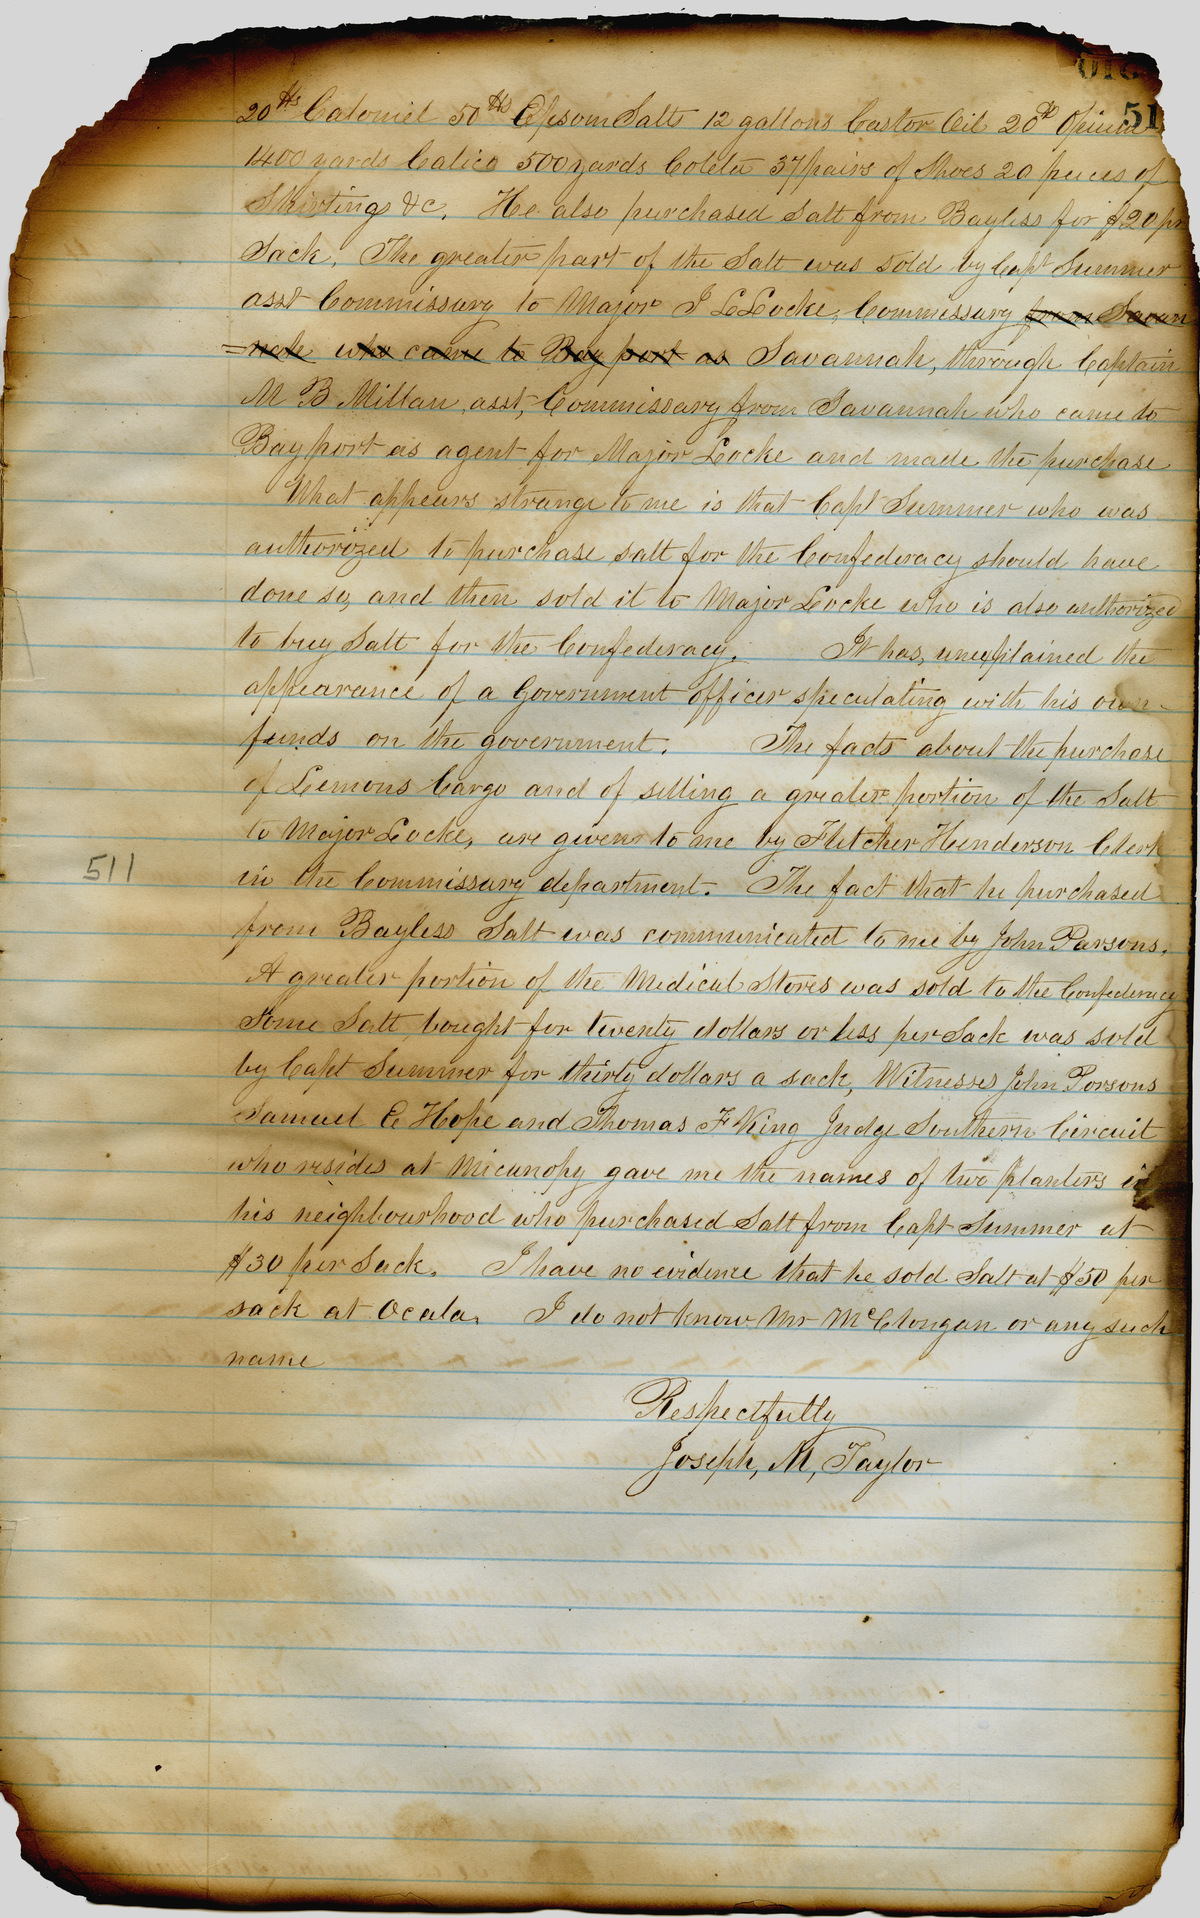 51
20 lbs Calomel 50 lbs Epsom Salts 12 gallons Castor Oil 20 lb Opium
1400 yards Calico 500 yards 37 pairs of Shoes 20 peices of
Shirtings &c. He also purchased Salt from Bayless for $20 pr
Sack. The greater part of the Salt was sold by Capt Summer
asst Commissary to Major J L Locke, Commissary from Savan
=nah who came to Bay port as Savannah, through Captain
M B Millan, asst, Commissary from Savannah who came to
Bayport as agent for Major Locke and made the purchase
What appears strange to me is that Capt Summer who was
authorized to purchase salt for the Confederacy should have
done so, and then sold it to Major Locke who is also authorized
to buy Salt for the Confederacy. It has, unexplained the
appearance of a Government officer speculating with his own
funds on the government. The facts about the purchase
of Lemons Cargo and of selling a greater portion of the Salt
to Major Locke, are given to me by Fletcher Henderson Clerk
511
in the Commissary department. The fact that he purchased
from Bayless Salt was communicated to me by John Parsons.
A greater portion of the Medical Stores was sold to the Confederacy
Some Salt bought for twenty dollars or less per Sack was sold
by Capt Summer for thirty dollars a sack, Witnesses John Porsons
Samuel E Hope and Thomas F King Judge Southern Circuit
who resides at Micanopy gave me the names of two planters in
his neighbourhood who purchased Salt from Capt Summer at
$30 per Sack. I have no evidence that he sold Salt at $50 per
sack at Ocala. I do not know Mr McClongan or any such
name
Respectfully
Joseph, M, Taylor